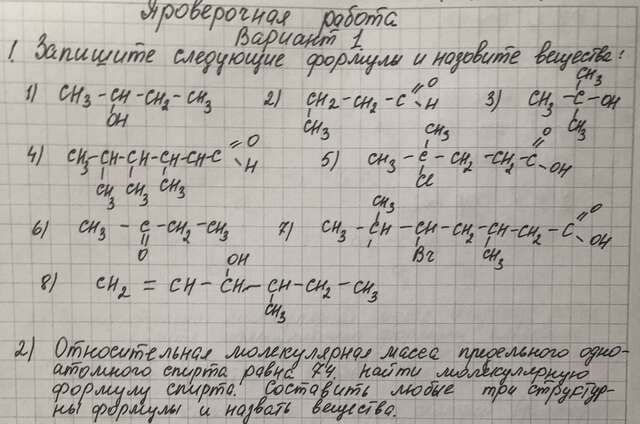 Проверочная работа
Вариант 1
1. Запишите следующие формулы и назовите вещества:
1) CH3 – CH – CH2 – CH3 2) CH2 – CH2 – C =O 3) CH3 – C – OH
OH CH3 H CH3 CH3
4) CH3 – CH – CH – CH – CH – C =O 5) CH3 – C – CH2 – CH2 – C =O
CH3 CH3 CH3 H CH3 Cl OH
6) CH3 – C – CH2 – CH3 7) CH3 – CH – CH – CH2 – CH – CH2 – C =O
O CH3 Br CH3 OH
8) CH2 = CH – CH – CH – CH2 – CH3
OH CH3
2) Относительная молекулярная масса предельного одно-
атомного спирта равна 74, найти молекулярную
формулу спирта. Составить любые три структур-
ны формулы и назвать вещества.